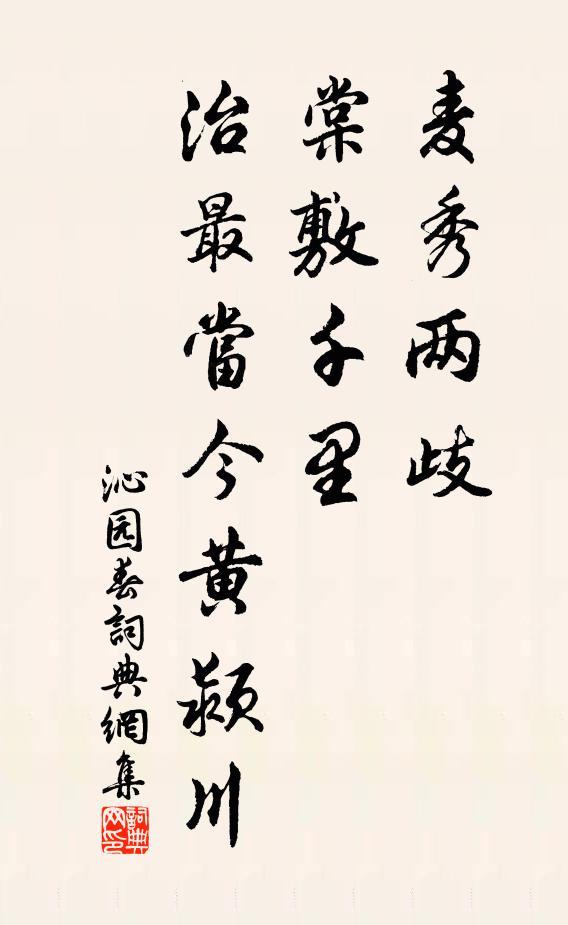 麦秀两歧
棠敷千里
治最當今黄颍川
沁园春詞典網集
詞典网印